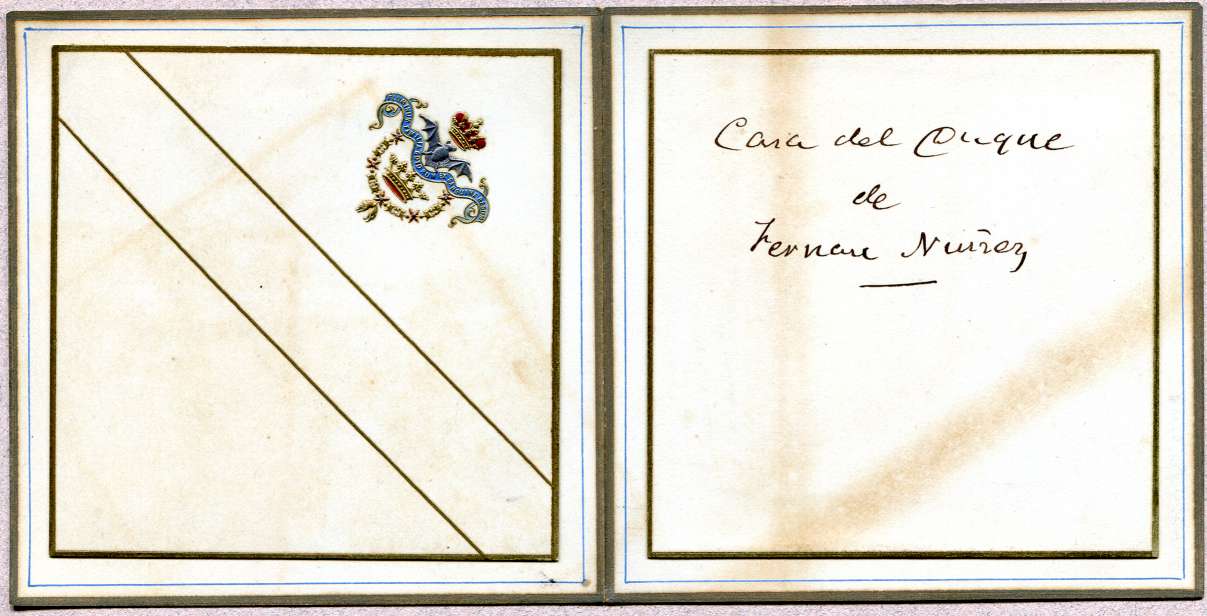 Casa del Duque
de
Fernan Nuñez